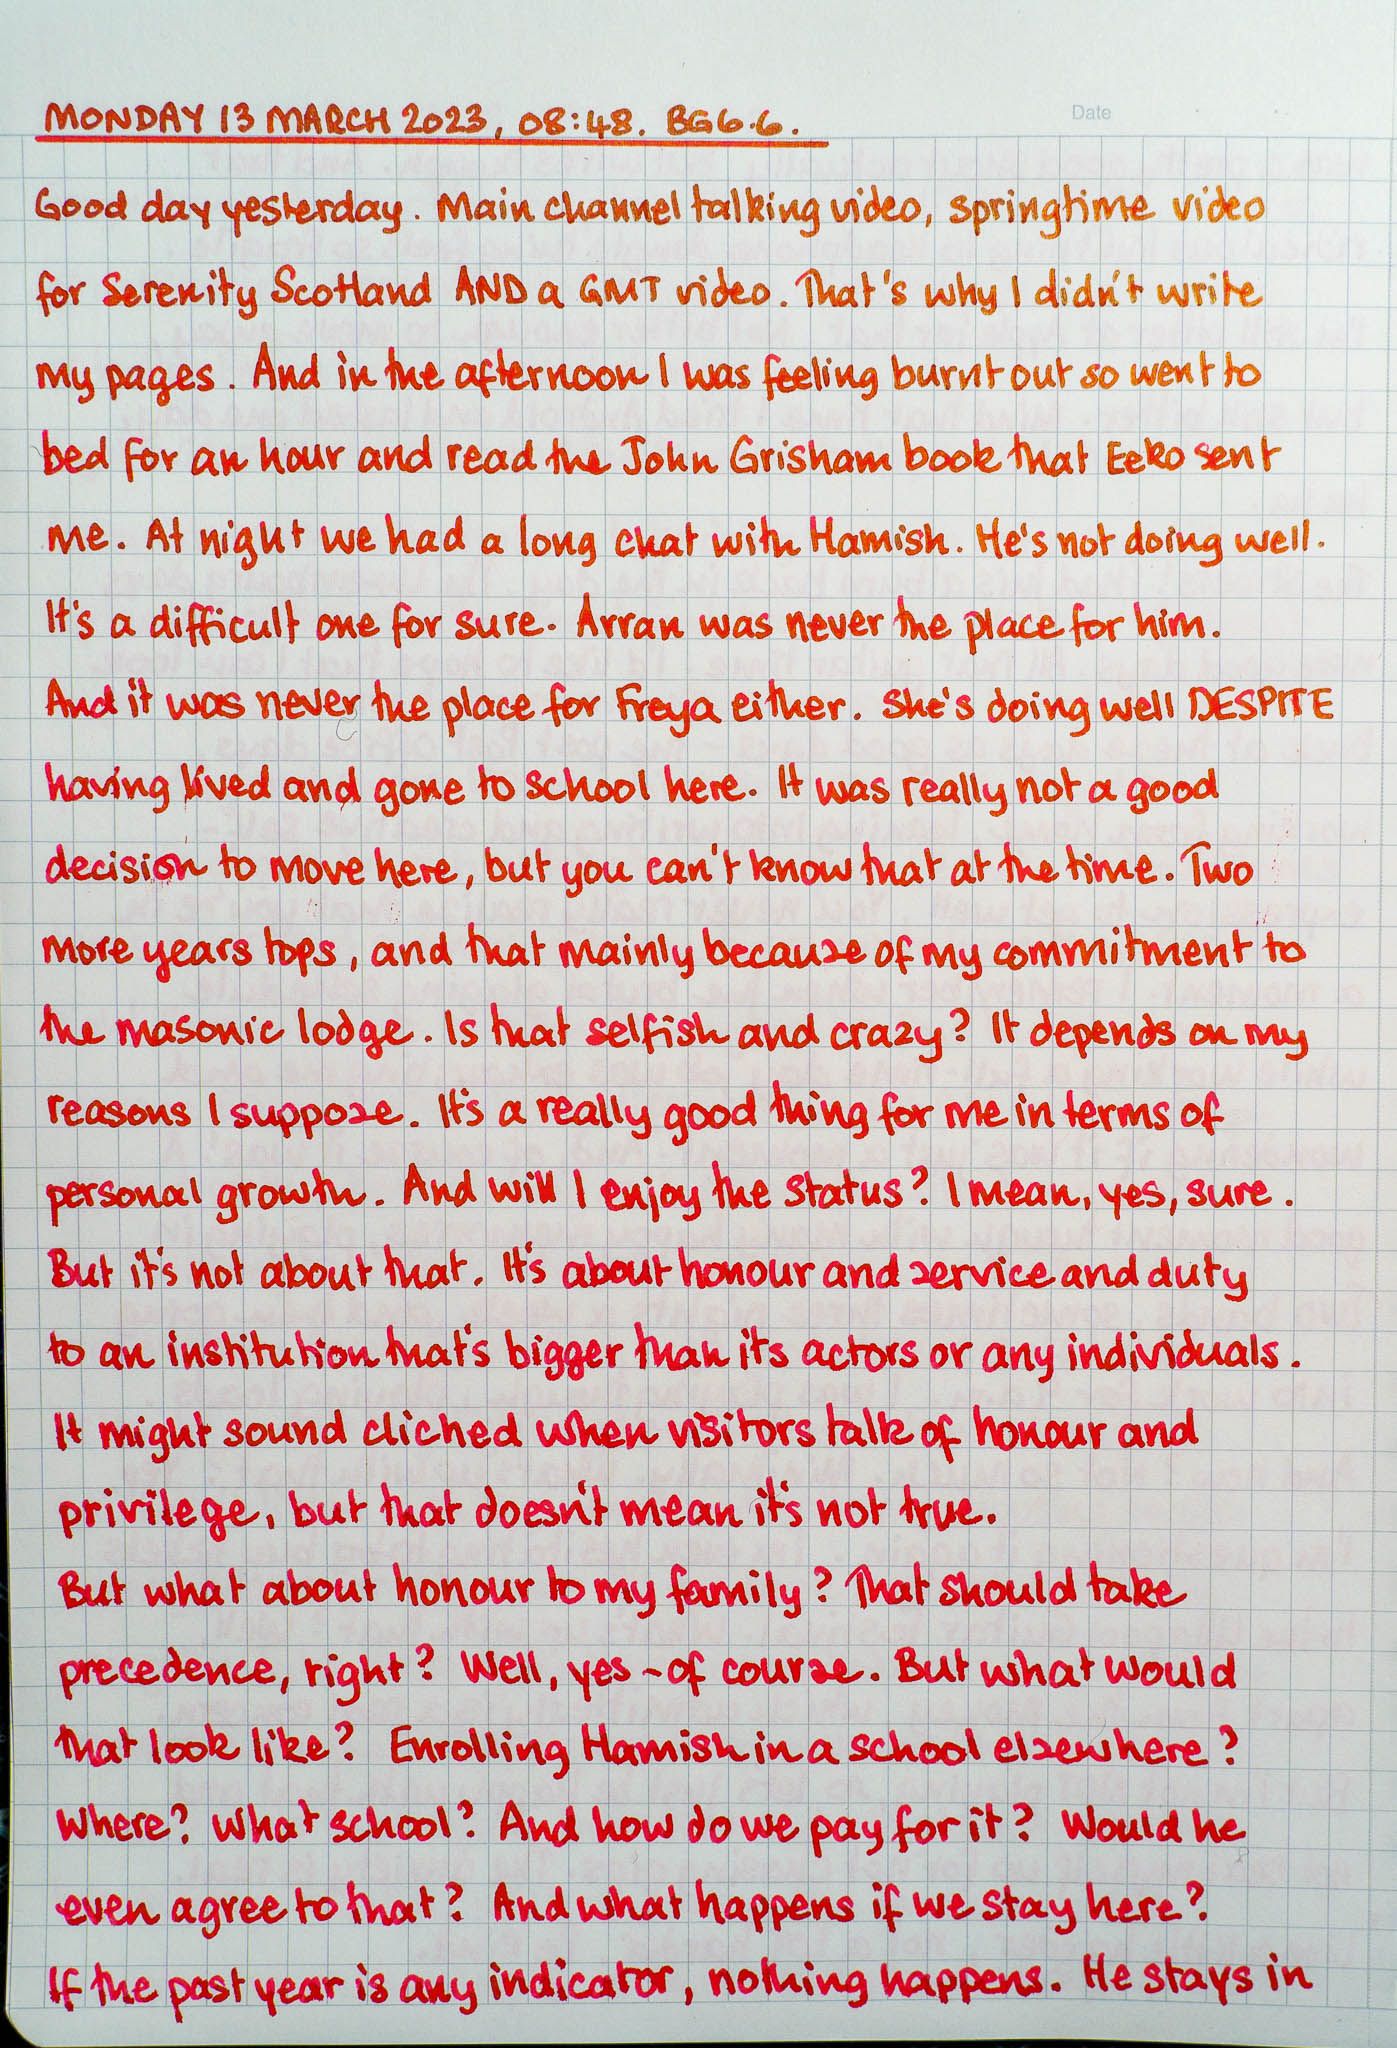 MONDAY 13 MARCH 2023, 08:48. BG 6.6.
Date
Good day yesterday. Main channel talking video, springtime video
for Serenity Scotland AND a GMT video. That's why I didn't write
my pages. And in the afternoon I was feeling burnt out so went to
bed for an hour and read the John Grisham book that Eeko sent
me. At night we had a long chat with Hamish. He's not doing well.
It's a difficult one for sure. Arran was never the place for him.
And it was never the place for Freya either. She's doing well DESPITE
having lived and gone to school here. It was really not a good
decision to move here, but you can't know that at the time. Two
more years tops, and that mainly because of my commitment to
the masonic lodge. Is that selfish and crazy? It depends on my
reasons I suppose. It's a really good thing for me in terms of
personal growth. And will I enjoy the status? I mean, yes, sure.
But it's not about that. It's about honour and service and duty
to an institution that's bigger than its actors or any individuals.
It might sound cliched when visitors talk of honour and
privilege, but that doesn't mean it's not true.
But what about honour to my family? That should take
precedence, right? Well, yes - of course. But what would
that look like? Enrolling Hamish in a school elsewhere?
Where? What school? And how do we pay for it? Would he
even agree to that? And what happens if we stay here?
If the past year is any indicator, nothing happens. He stays in